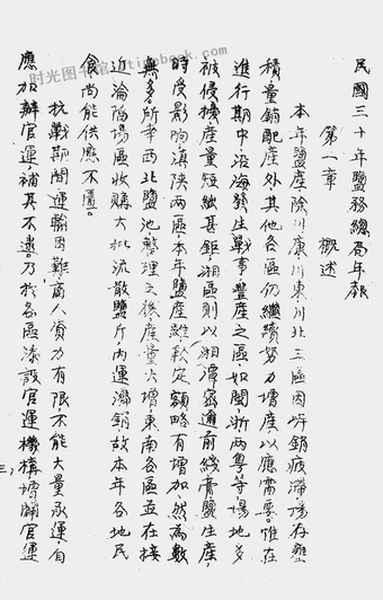 民國三十年鹽務總局年報
第一章 概述
本年鹽產除川康川東川北三區因岸銷疲滯場存壅
積量銷配產外其他各區仍繼續努力增產以應需要惟在
進行期中沿海發生戰事豐產之區如閩浙兩粵等場地多
被侵擾產量短絀甚鉅湘區則以湘潭密邇前綫膏鹽生產
時受影响滇陝兩區本年鹽產雖較定額略有增加然為數
無多所幸西北鹽池整理之後產量大增東南各區並在接
近淪陷場區收購大批流散鹽斤內運濟銷故本年各地民
食尚能供應不匱
抗戰期間運輸困難商人資力有限不能大量承運自
應加辦官運補其不逮乃於各區添設官運機構增闢官運
三
时光图书馆 timebook.com